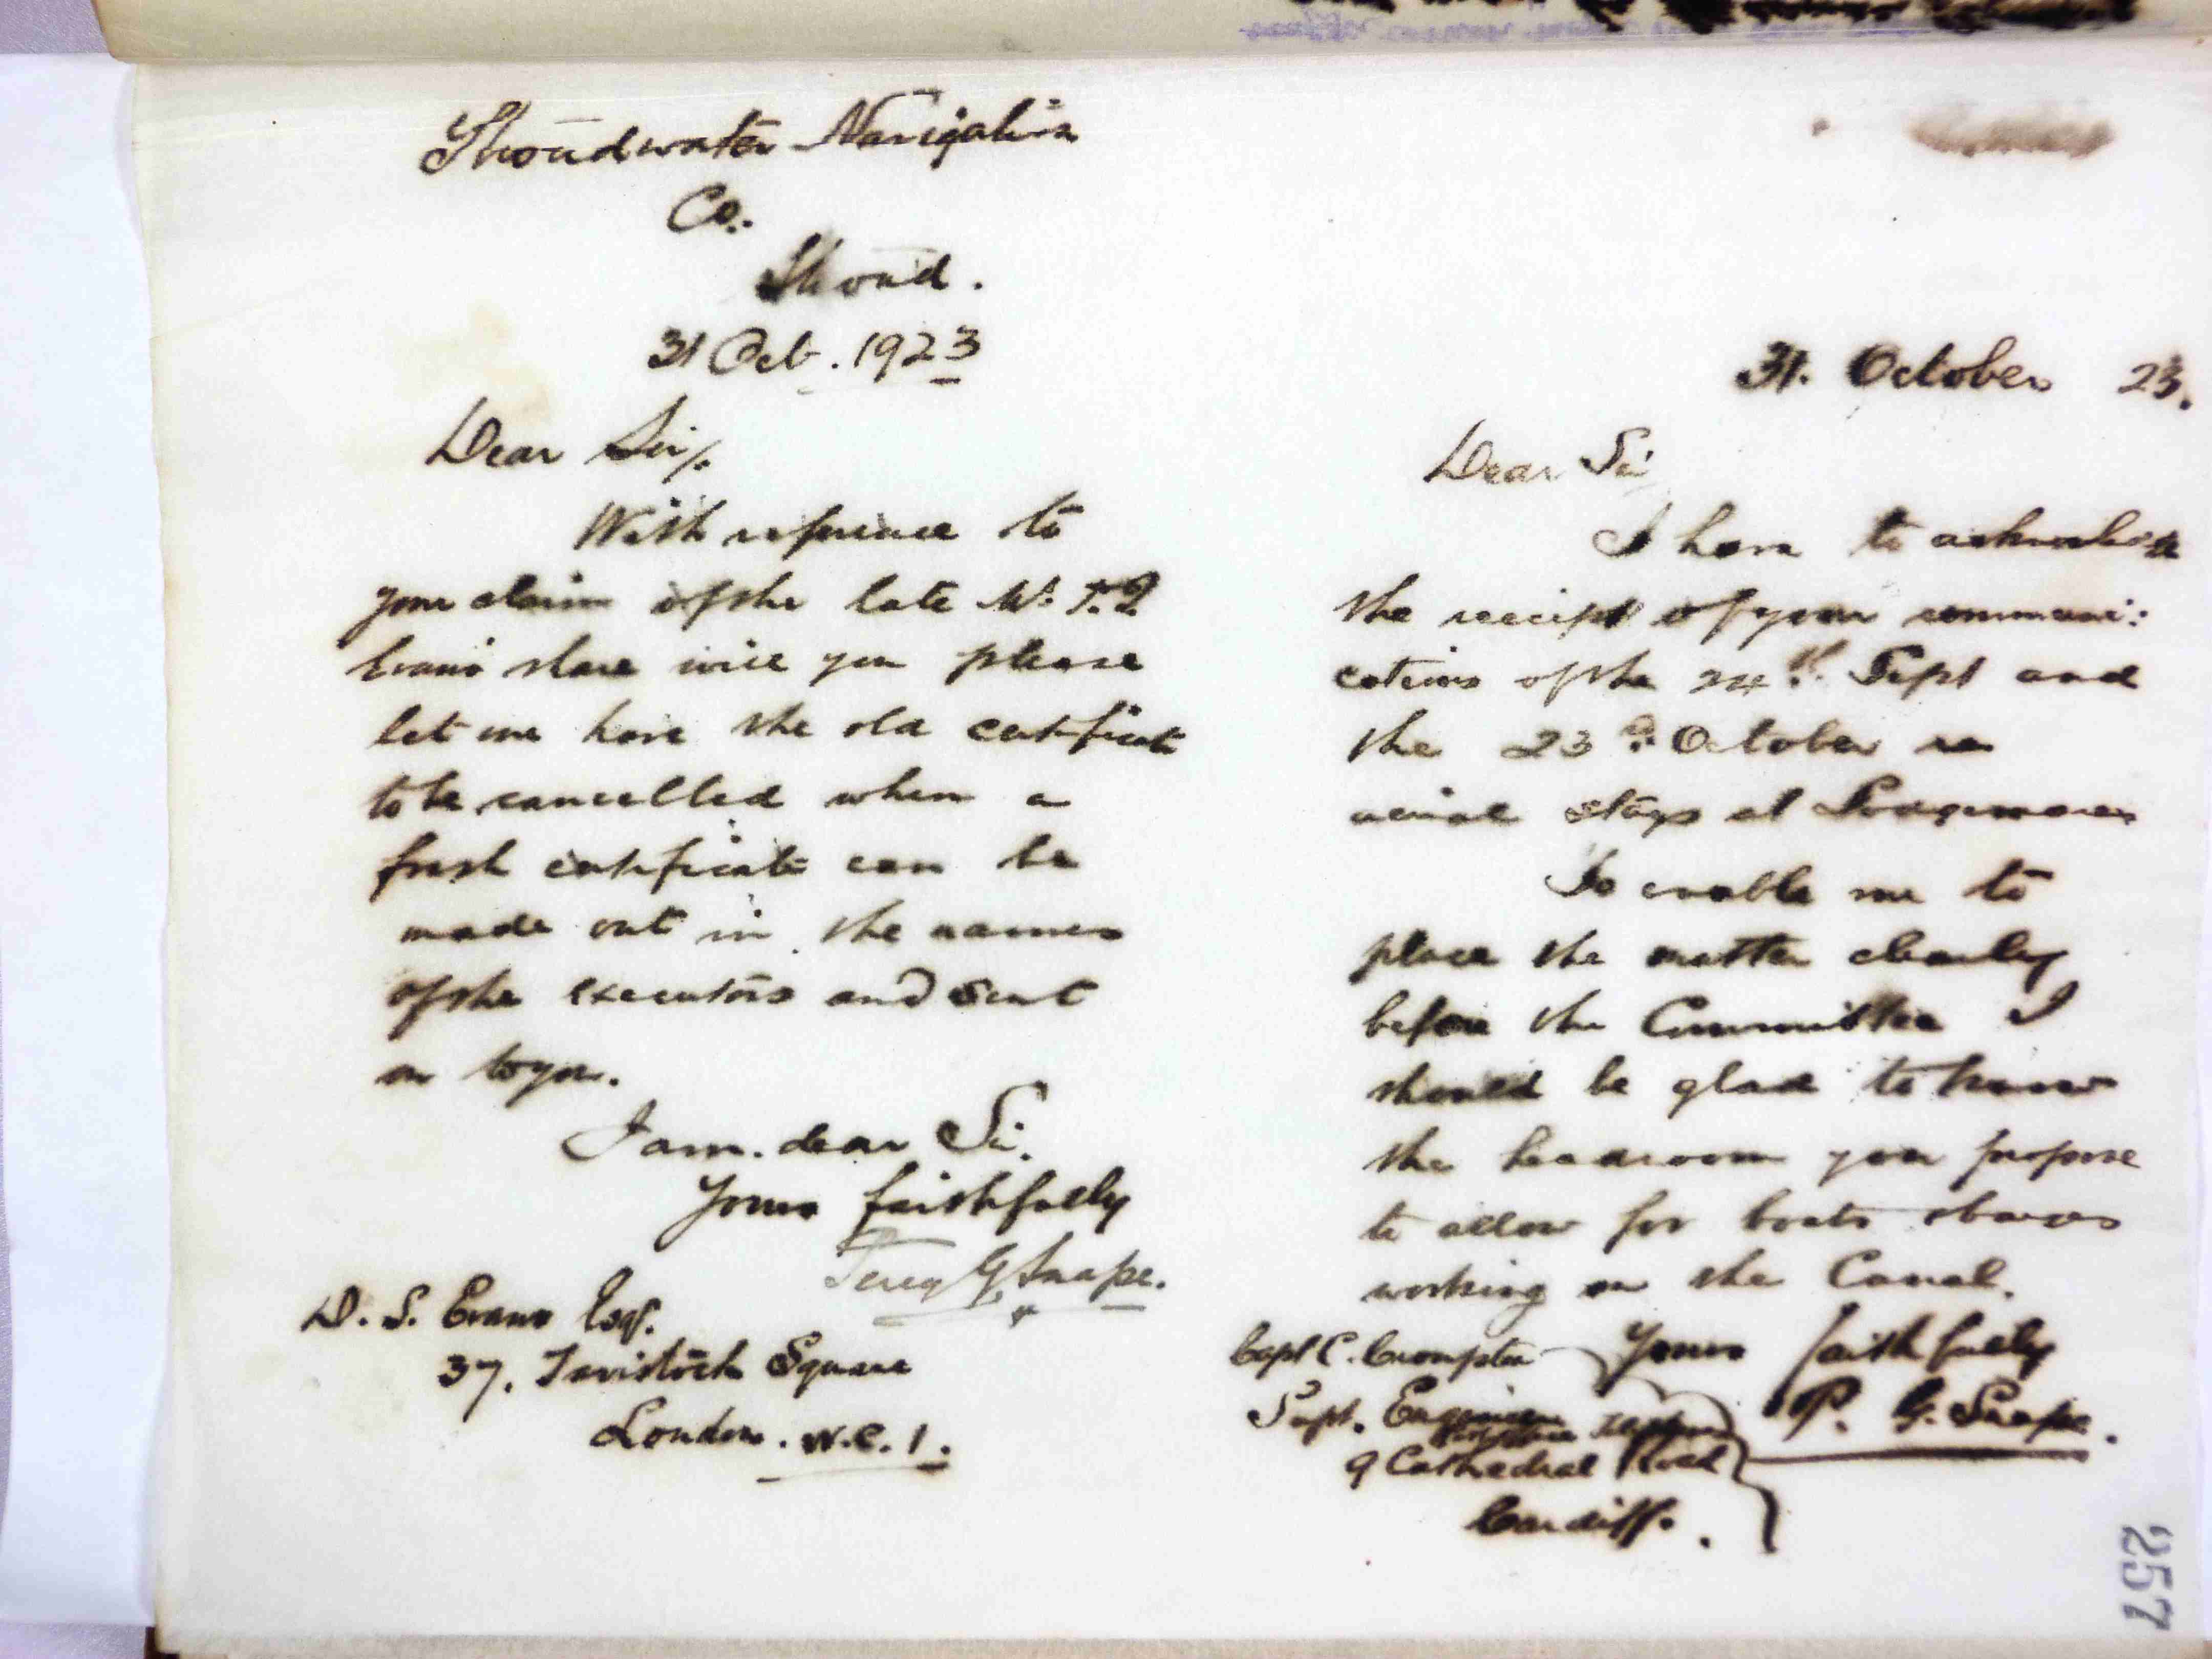 Stroudwater Navigation
Co.
Stroud.
31 Oct. 1923
Dear Sir/.
With reference to
your claim of the late Mr. T. J.
Evans share will you please
let me have the old certificate
to be cancelled when a
fresh certificate can be
made out in the names
of the executors and sent
on to you.
I am. dear Sir.
Yours faithfully
Percy G Snape.
D. S. Evans Esqr.
37. Tavistock Square
London. W.C. 1.
31. October 23.
Dear Sir
I have to acknowledge
the receipt of your communi:
cations of the 24th. Sept and
the 23rd. October re
aerial stays at Lodgemores
To enable me to
place the matter clearly
before the Committee I
should be glad to know
the headroom you propose
to allow for boats & barges
working on the Canal.
Yours faithfully
P. G. Snape.
Capt C. Crompton
Supt. Engineer
9 Cathedral Road
Cardiff.
257